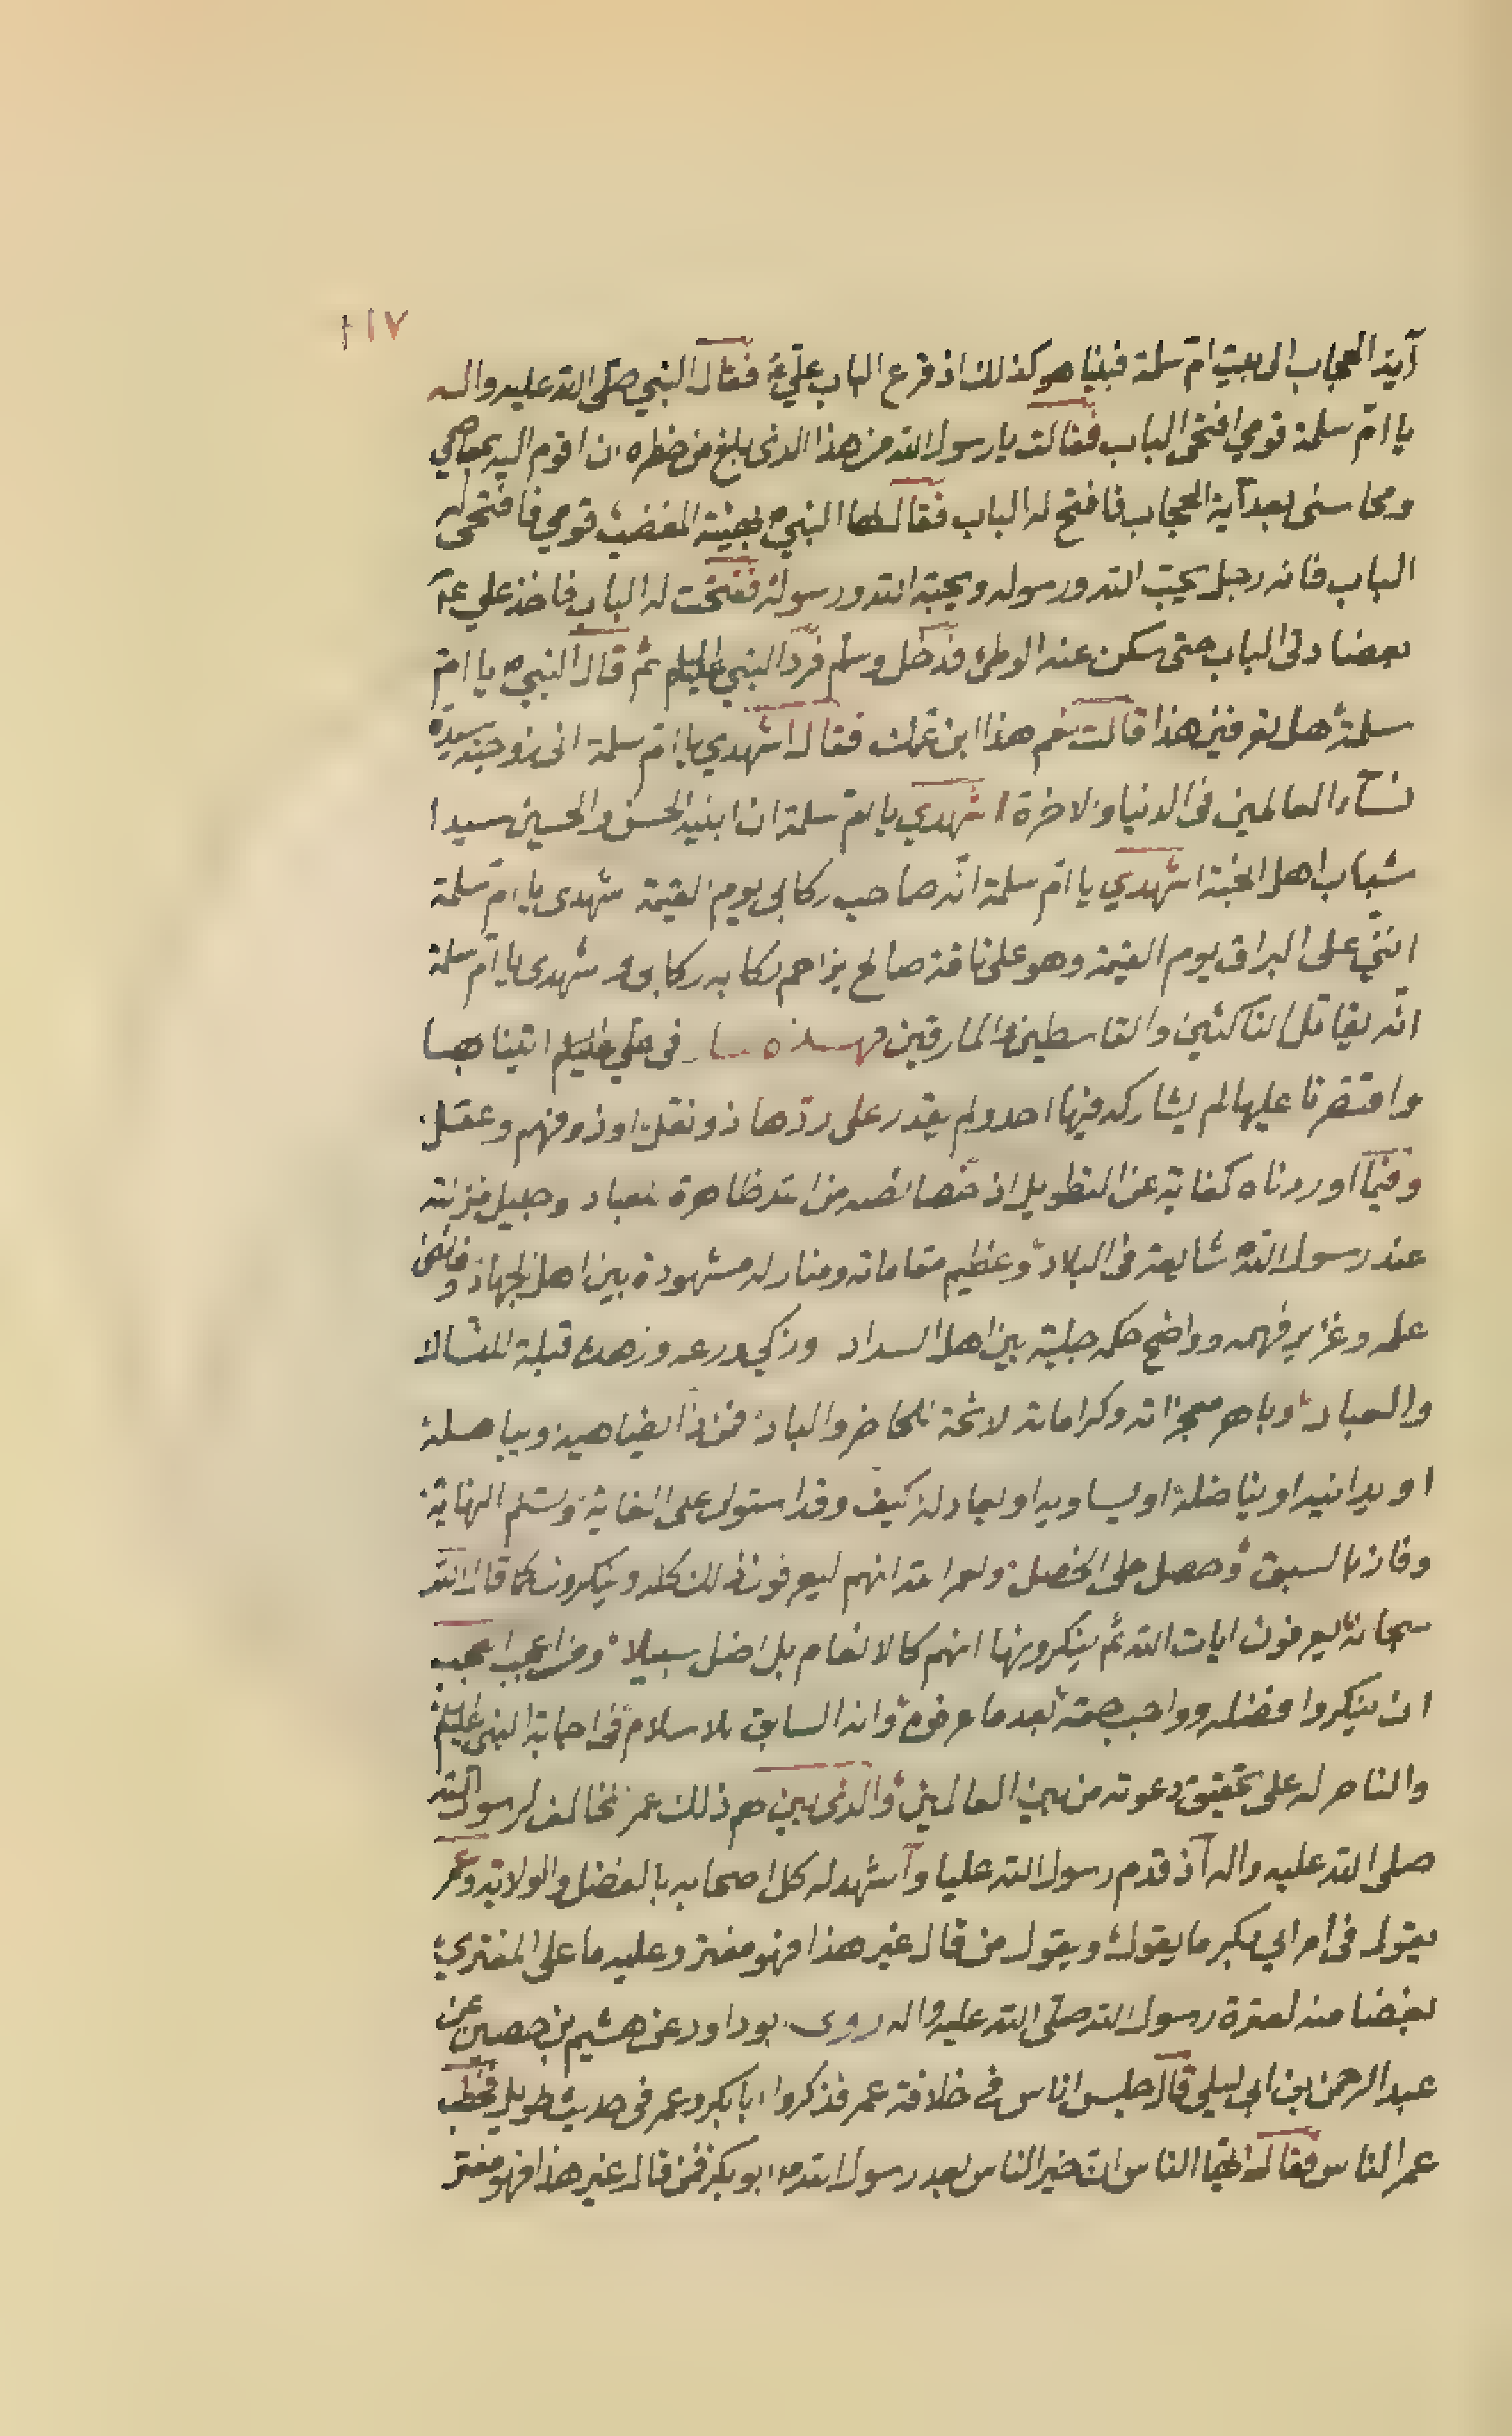 ١١٧
آية الحجاب الى بيت امّ سلمة فبينا هو كذلك اذ قرع الباب عليّ ع فقال النبي صلى الله عليه واله
يا امّ سلمة قومي افتحى الباب فقالت يا رسول الله من هذا الذى بلغ من خطره ان اقوم اليه بمعاصمي
ومحاسنى بعد آية الحجاب فافتح له الباب فقال لها النبي كهيئة المغضب قومي فافتحى له
الباب فانه رجل يحبّ الله ورسوله ويحبّه الله ورسوله ففتحت له الباب فاخذ علي ع
بعضادتى الباب حتى سكن عنه الوطئ فدخل وسلم فردّ النبي عليه السلم ثم قال النبي يا امّ
سلمة هل تعرفين هذا قالت نعم هذا ابن عمك فقال اشهدي يا امّ سلمة انى زوجته سيدة
نساء العالمين فى الدنيا والاخرة اشهدي يا امّ سلمة ان ابنيه الحسن والحسين سيدا
شباب اهل الجنة اشهدي يا امّ سلمة انّه صاحب ركابى يوم القيمة شهدى يا امّ سلمة
اننّي على البراق يوم القيمة وهو على ناقة صالح يزاحم ركابه ركابى و شهدى يا امّ سلمة
انّه يقاتل الناكثين والقاسطين والمارقين فهذه في علي عليه السلم اتينا بها
واقتصرنا عليها لم يشاركه فيها احد ولم يقدر على ردّها ذو نقل او ذو فهم وعقل
وفيما اوردناه كفاية عن التطويل اذ خصائصه من الله ظاهرة للعباد وجميل منزلته
عند رسول الله شايعة فى البلاد وعظيم مقاماته ومنازله مشهودة بين اهل الجهاد وفائض
علمه وغزير فهمه وواضح حكمه جليّة بين اهل السداد وزكي ورعه وزهده قبلة للنسّاك
والعباد وباهر معجزاته وكراماته لائحة للحاضر والباد فمن ذا يضاهيه ويباهله
او يدانيه او يناضله او يساويه او يعادله كيف وقد استولى على الغاية وتسلم النهاية
وفاز بالسبق وحصل على الخصل ولعمر الله انهم ليعرفون ذلك كله وينكرون كما قال الله
سبحانه يعرفون ايات الله ثم ينكرونها انهم كالانعام بل اضل سبيلا ومن اعجب العجب
ان ينكروا فضله وواجب حقه بعد ما عرفوه وانه السابق للاسلام فى اجابة النبي عليه السلم
والناصر له على تحقيق دعوته من بين العالمين والذى بين هم ذلك عمر مخالف لرسول الله
صلى الله عليه واله اذ قدم رسول الله عليا واشهد له كل اصحابه بالفضل والولاية وعمر
يقول فى امر ابي بكر ما يقول ويقول من قال غير هذا فهو مفتر وعليه ما على المفتري
بغضا منه لعترة رسول الله صلى الله عليه واله روى بو داود عن هشيم بن حصين عن
عبد الرحمن بن ابى ليلى قال جلس اناس في خلافة عمر فذكروا ابا بكر وعمر فى حديث طويل فخطب
عمر الناس فقال ايها الناس ان خير الناس بعد رسول الله ابو بكر فمن قال غير هذا فهو مفتر